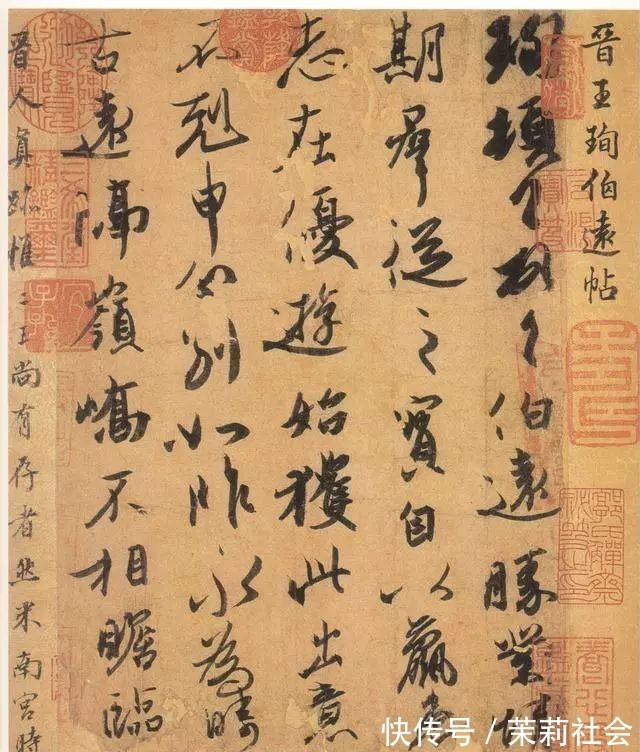 晉王珣伯遠帖
珣頓首頓首伯遠勝業情
期羣從之寶自以羸患
志在優遊始獲此出意
不剋申分別如昨永為疇
古遠隔嶺嶠不相瞻臨
晉人真跡惟二王尚有存者然米南宮時
快传号 / 茉莉社会